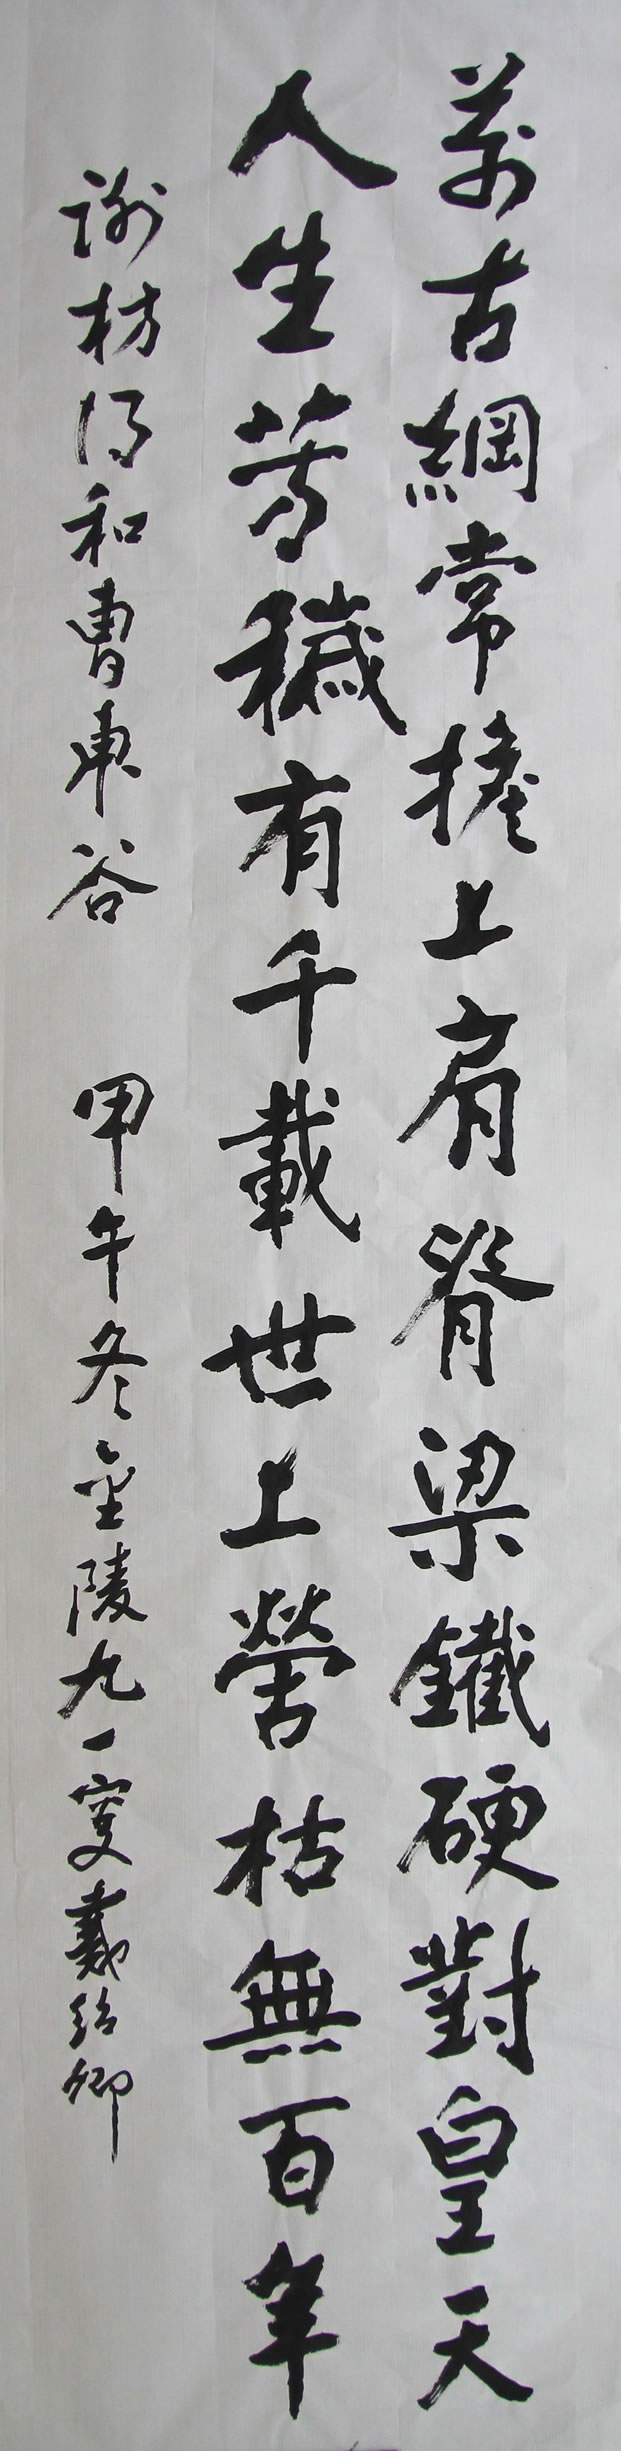 萬古綱常擔上肩脊梁鐵硬對皇天
人生芳穢有千載世上榮枯無百年
謝枋得和曹東谷 甲午冬金陵九一叟戴紹卿